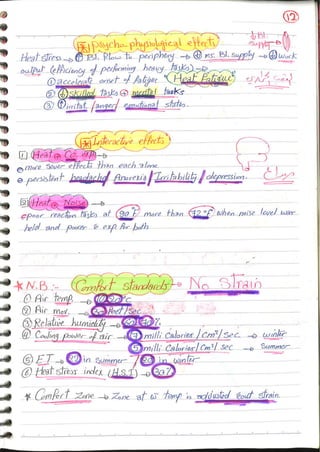 12
Psycho physiological effects
Heat stress → ↑ Bl. Flow to periphery → ↓ ms. Bl. Supply → ↓ work
output (efficiency of performing heavy tasks) →
① accelerate onset of fatigue "Heat Fatigue"
② ↓ skilled tasks & mental tasks
③ ↑ irritat / anger / emotional states.
Interactive effects
1 Heat & CO exp →
more sever effects than each alone
persistent headache / Anorexia / Irritability / depression.
2 Heat & Noise →
poor reaction tasks at 90°F more than 72°F when noise level were
held and power & exp for both
* N.B:- Comfort standards → No Strain
① Air temp →
② Air mov. → Feet/Sec
③ Relative humidity →
④ Cooling power of air → milli Calories / Cm²/ Sec → winter
milli Calories / Cm²/ Sec → Summer
⑤ E.T → in Summer / in winter
⑥ Heat stress index (H.S.I) → 30%
* Comfort Zone → Zone at w temp is adjusted eout strain.